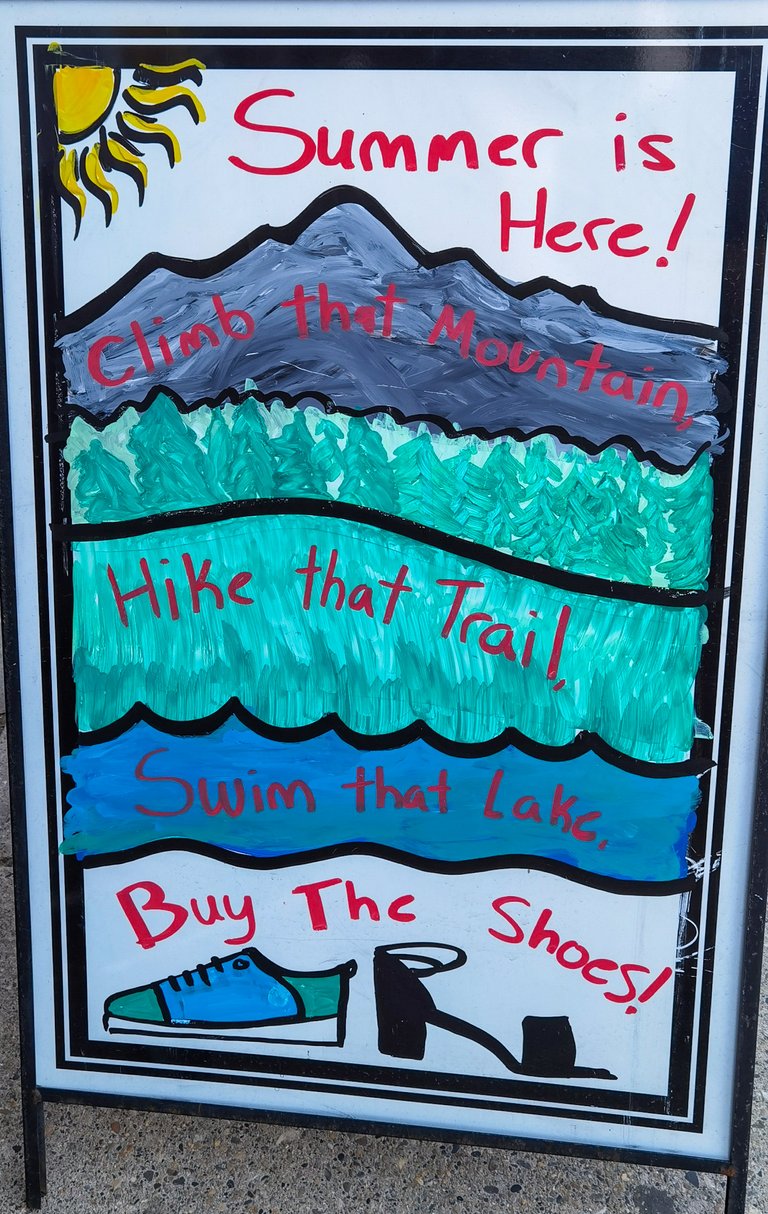 Summer is
Here!
Climb that Mountain,
Hike that Trail,
Swim that Lake.
Buy The Shoes!